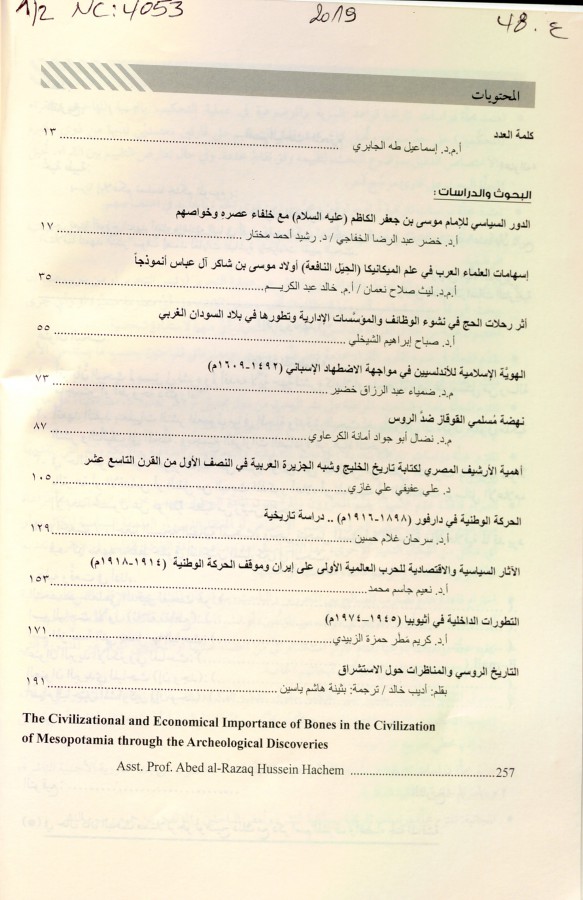 1/2 NC: 4053
2019
48. ع
المحتويات
كلمة العدد
أ.م.د. إسماعيل طه الجابري ١٣
البحوث والدراسات :
الدور السياسي للإمام موسى بن جعفر الكاظم (عليه السلام) مع خلفاء عصره وخواصهم
أ.د. خضر عبد الرضا الخفاجي / د. رشيد أحمد مختار ١٧
إسهامات العلماء العرب في علم الميكانيكا (الحيَل النافعة) أولاد موسى بن شاكر آل عباس أنموذجاً
أ.م.د. ليث صلاح نعمان / أ.م. خالد عبد الكريـــم ٣٥
أثر رحلات الحج في نشوء الوظائف والمؤسَّسات الإدارية وتطورها في بلاد السودان الغربي
أ.د. صباح إبراهيم الشيخلي ٥٥
الهويَّة الإسلامية للأندلسيين في مواجهة الاضطهاد الإسباني (١٤٩٢-١٦٠٩م)
م.د. ضمياء عبد الرزاق خضير ٧٣
نهضة مُسلمي القوقاز ضدَّ الروس
م.د. نضال أبو جواد أمانة الكرعاوي ٨٧
أهمية الأرشيف المصري لكتابة تاريخ الخليج وشبه الجزيرة العربية في النصف الأول من القرن التاسع عشر
د. علي عفيفي علي غازي ١٠٥
الحركة الوطنية في دارفور (١٨٩٨-١٩١٦م) .. دراسة تاريخية
أ.د. سرحان غلام حسين ١٢٩
الآثار السياسية والاقتصادية للحرب العالمية الأولى على إيران وموقف الحركة الوطنية (١٩١٤-١٩١٨م)
أ.د. نعيم جاسم محمد ١٥٣
التطورات الداخلية في أثيوبيا (١٩٤٥-١٩٧٤م)
أ.د. كريم مَطَر حمزة الزبيدي ١٧١
التاريخ الروسي والمناظرات حول الاستشراق
بقلم: أديب خالد / ترجمة: بثينة هاشم ياسين ١٩١
The Civilizational and Economical Importance of Bones in the Civilization
of Mesopotamia through the Archeological Discoveries
Asst. Prof. Abed al-Razaq Hussein Hachem 257